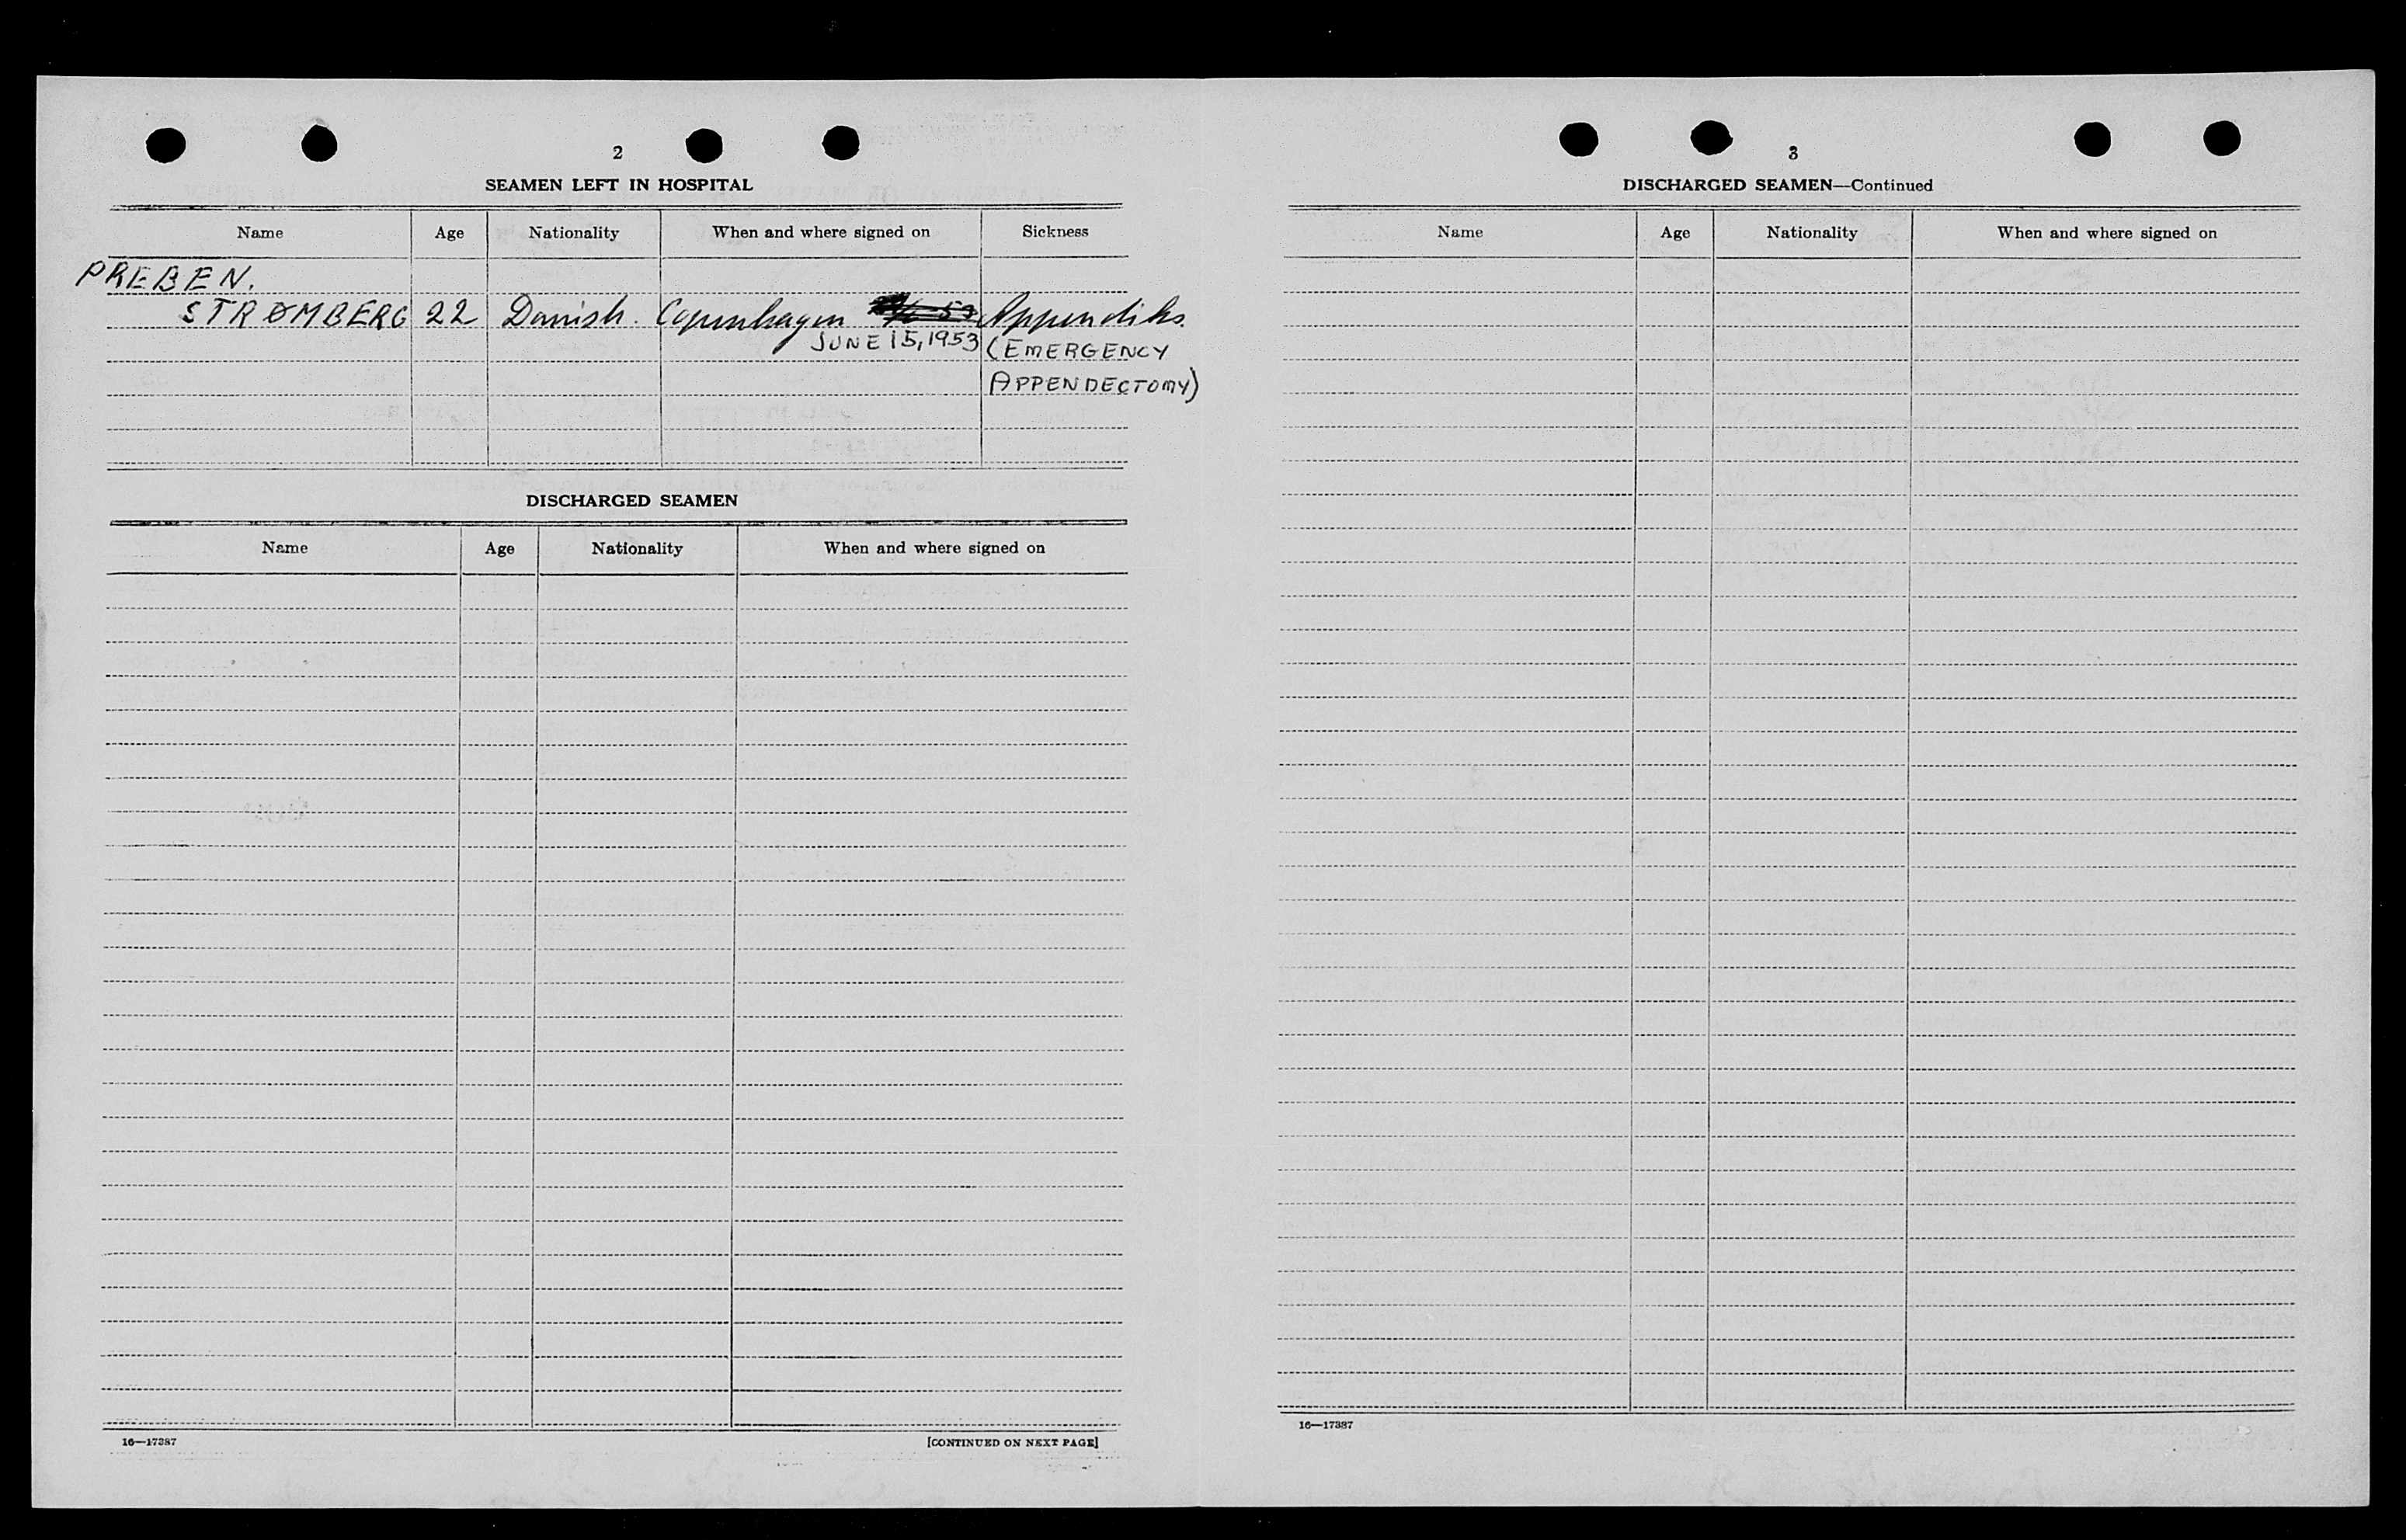 2
SEAMEN LEFT IN HOSPITAL
Name Age Nationality When and where signed on Sickness
PREBEN.
STRØMBERG 22 Danish. Copenhagen 53 Appendiks.
JUNE 15, 1953 (EMERGENCY
APPENDECTOMY)
DISCHARGED SEAMEN
Name Age Nationality When and where signed on
16—17387 [CONTINUED ON NEXT PAGE]
3
DISCHARGED SEAMEN—Continued
Name Age Nationality When and where signed on
16—17387